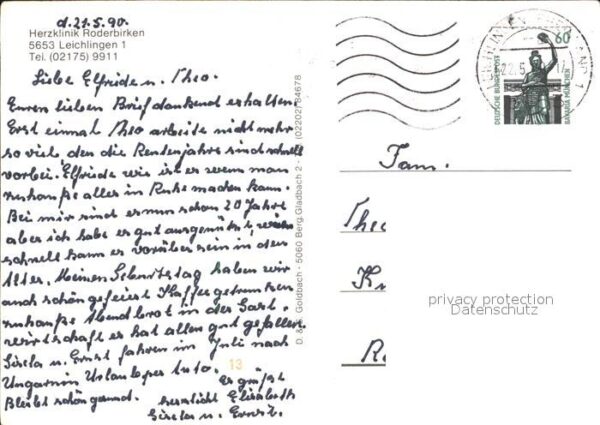 d. 21.5.90.
Herzklinik Roderbirken
5653 Leichlingen 1
Tel. (02175) 9911
Liebe Elfriede u. Theo.
Euren lieben Brief dankend erhalten.
Erst einmal Theo arbeite nicht mehr
so viel, den die Rentenjahre sind schnell
vorbei. Elfriede wie ist es wenn man
zuhauße alles in Ruhe machen kann.
Bei mir sind es nun schon 20 Jahre
aber ich habe es gut ausgenützt, wie
schnell kann es vorüber sein in den
Alter. Meinen Geburtstag haben wir
auch schön gefeiert Kaffee getrunken
zuhauße Abendbrot in der Gast-
wirtschaft es hat allen gut gefallen.
Gisela u. Ernst fahren im Juli nach
Ungarn in Urlaub per Auto.
Es grüßt
Bleibt schön gesund. herzlichst Elisabeth
Gisela u. Ernst.
13
D. & S. Goldbach - 5060 Berg. Gladbach 2 - (02202) 84678
60
DEUTSCHE BUNDESPOST
BAVARIA MÜNCHEN
22.5
Fam.
Theo
K
R
privacy protection
Datenschutz